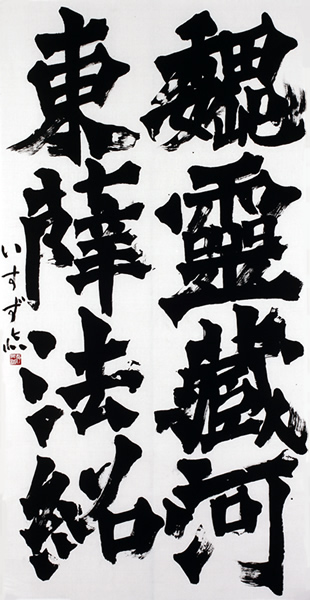 魏靈藏河
東薛法紹
いすず臨